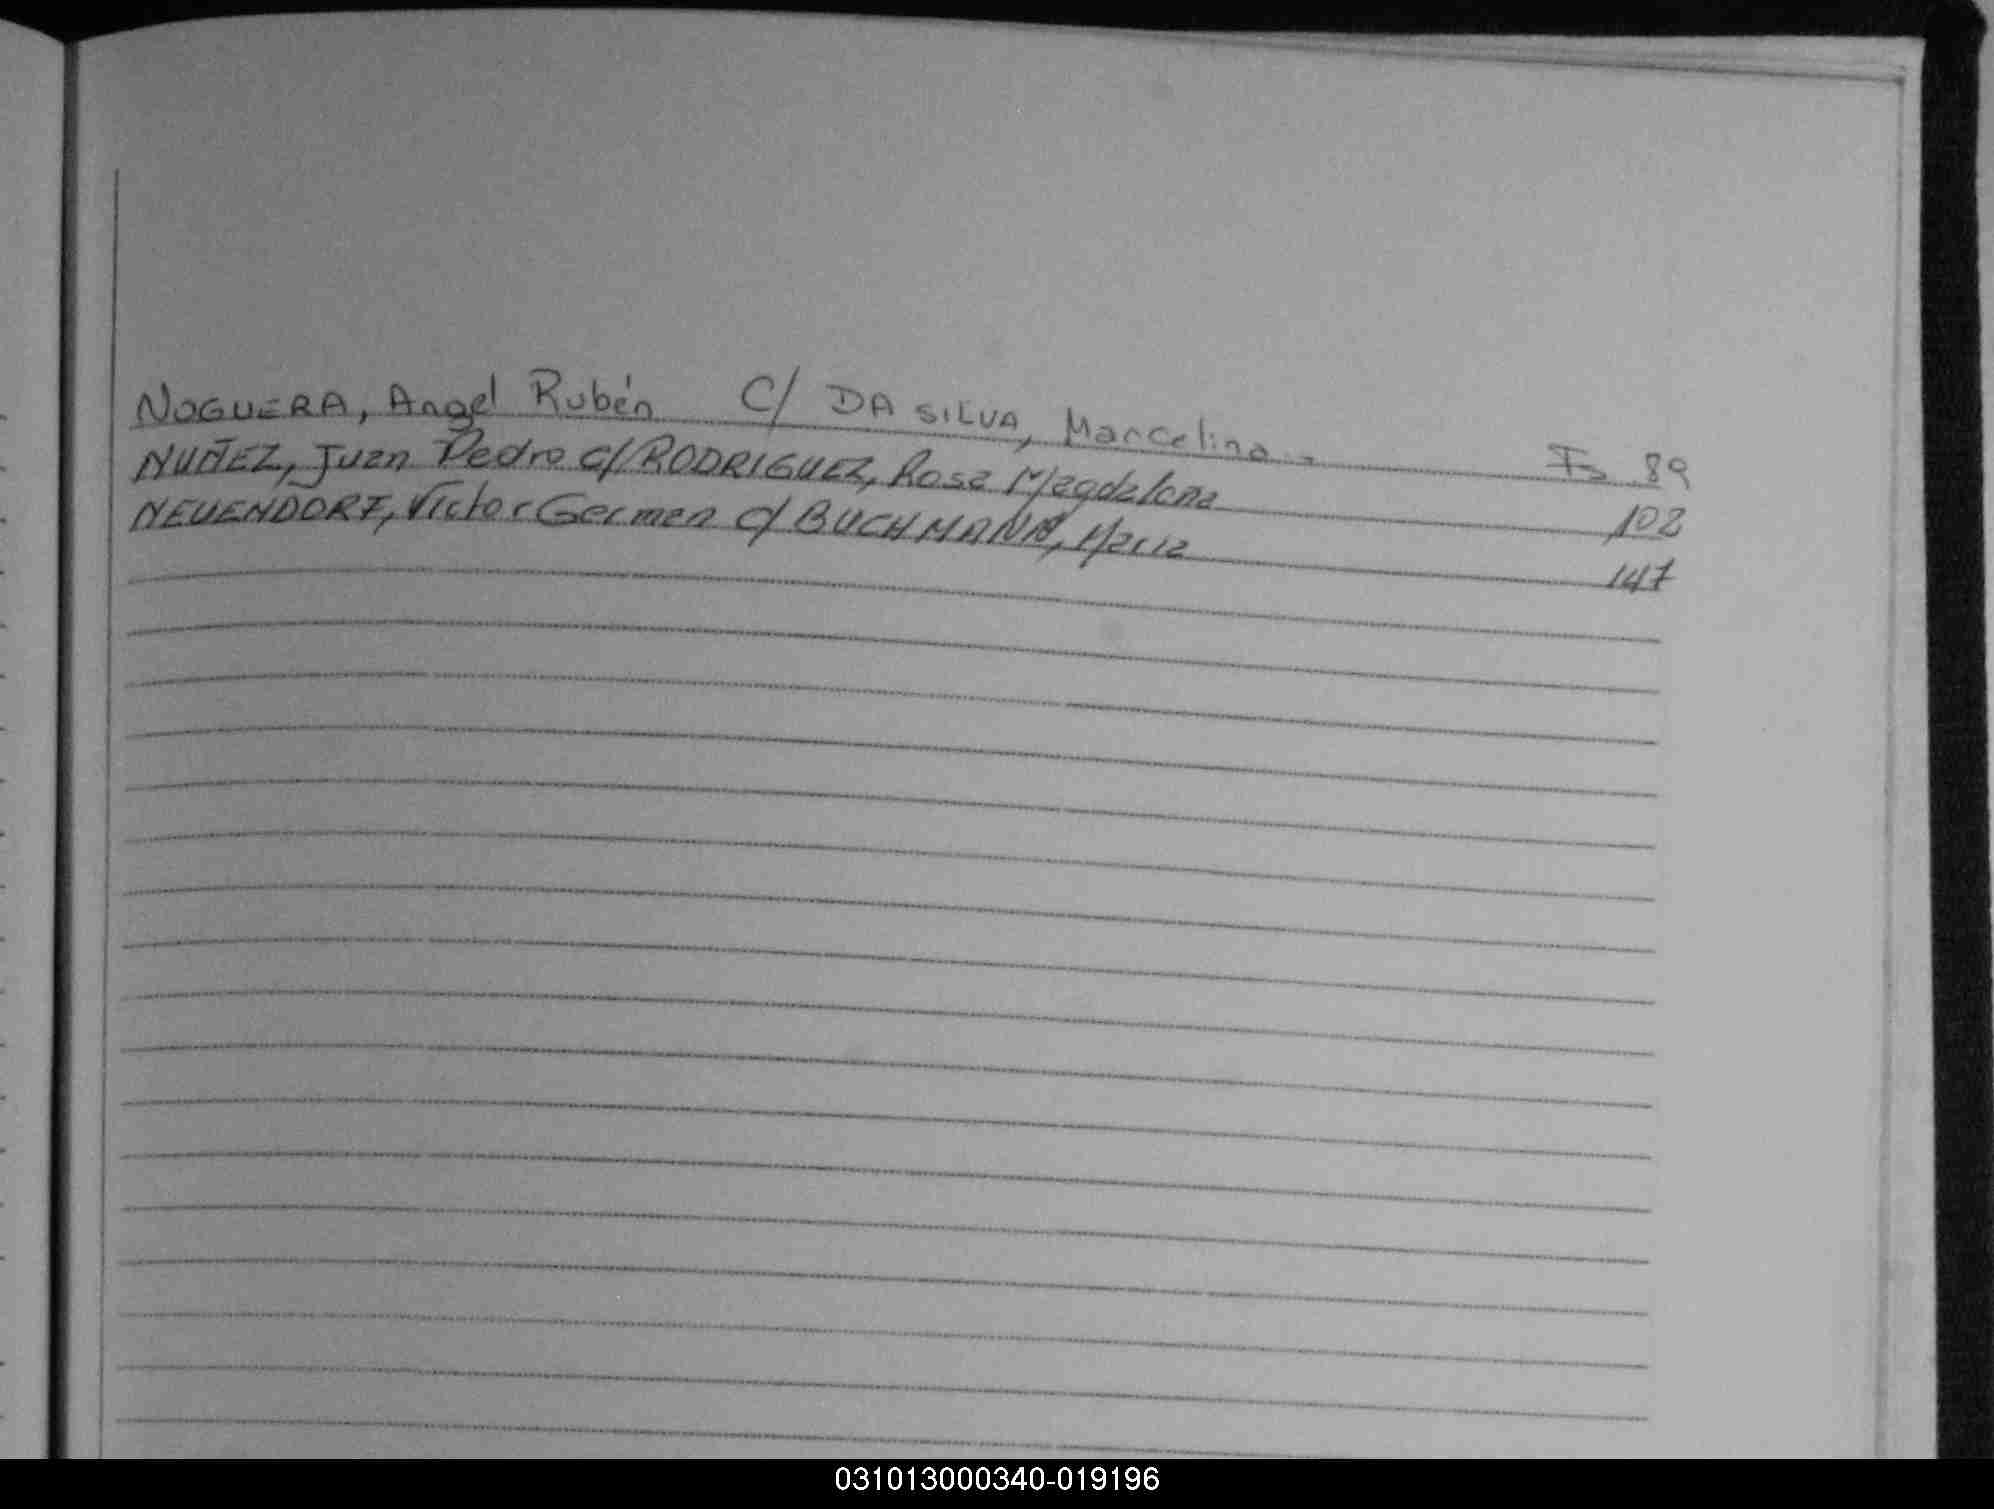 NOGUERA, Angel Rubén C/ DA SILVA, Marcelina.- Fs 89
NUÑEZ, Juan Pedro c/ RODRIGUEZ, Rosa Magdalena 102
NEUENDORF, Victor German c/ BUCHMANN, Maria 147
031013000340-019196